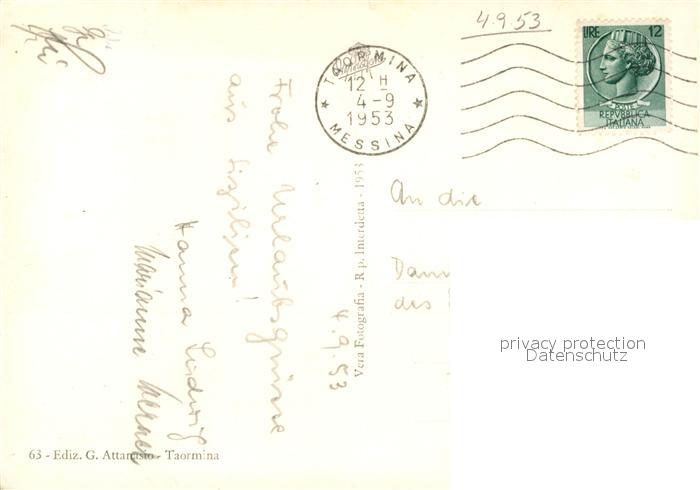 4.9.53
LIRE 12
POSTE
REPVBBLICA
ITALIANA
TAORMINA
12 H
4-9
1953
MESSINA
Frohe Urlaubsgrüsse
aus Sizilien!
Hanna Ludwig
Marianne Werner
4.9.53
Vera Fotografia - R.p. Interdetta - 1953
An die
Dam
des
privacy protection
Datenschutz
63 - Ediz. G. Attanasio - Taormina